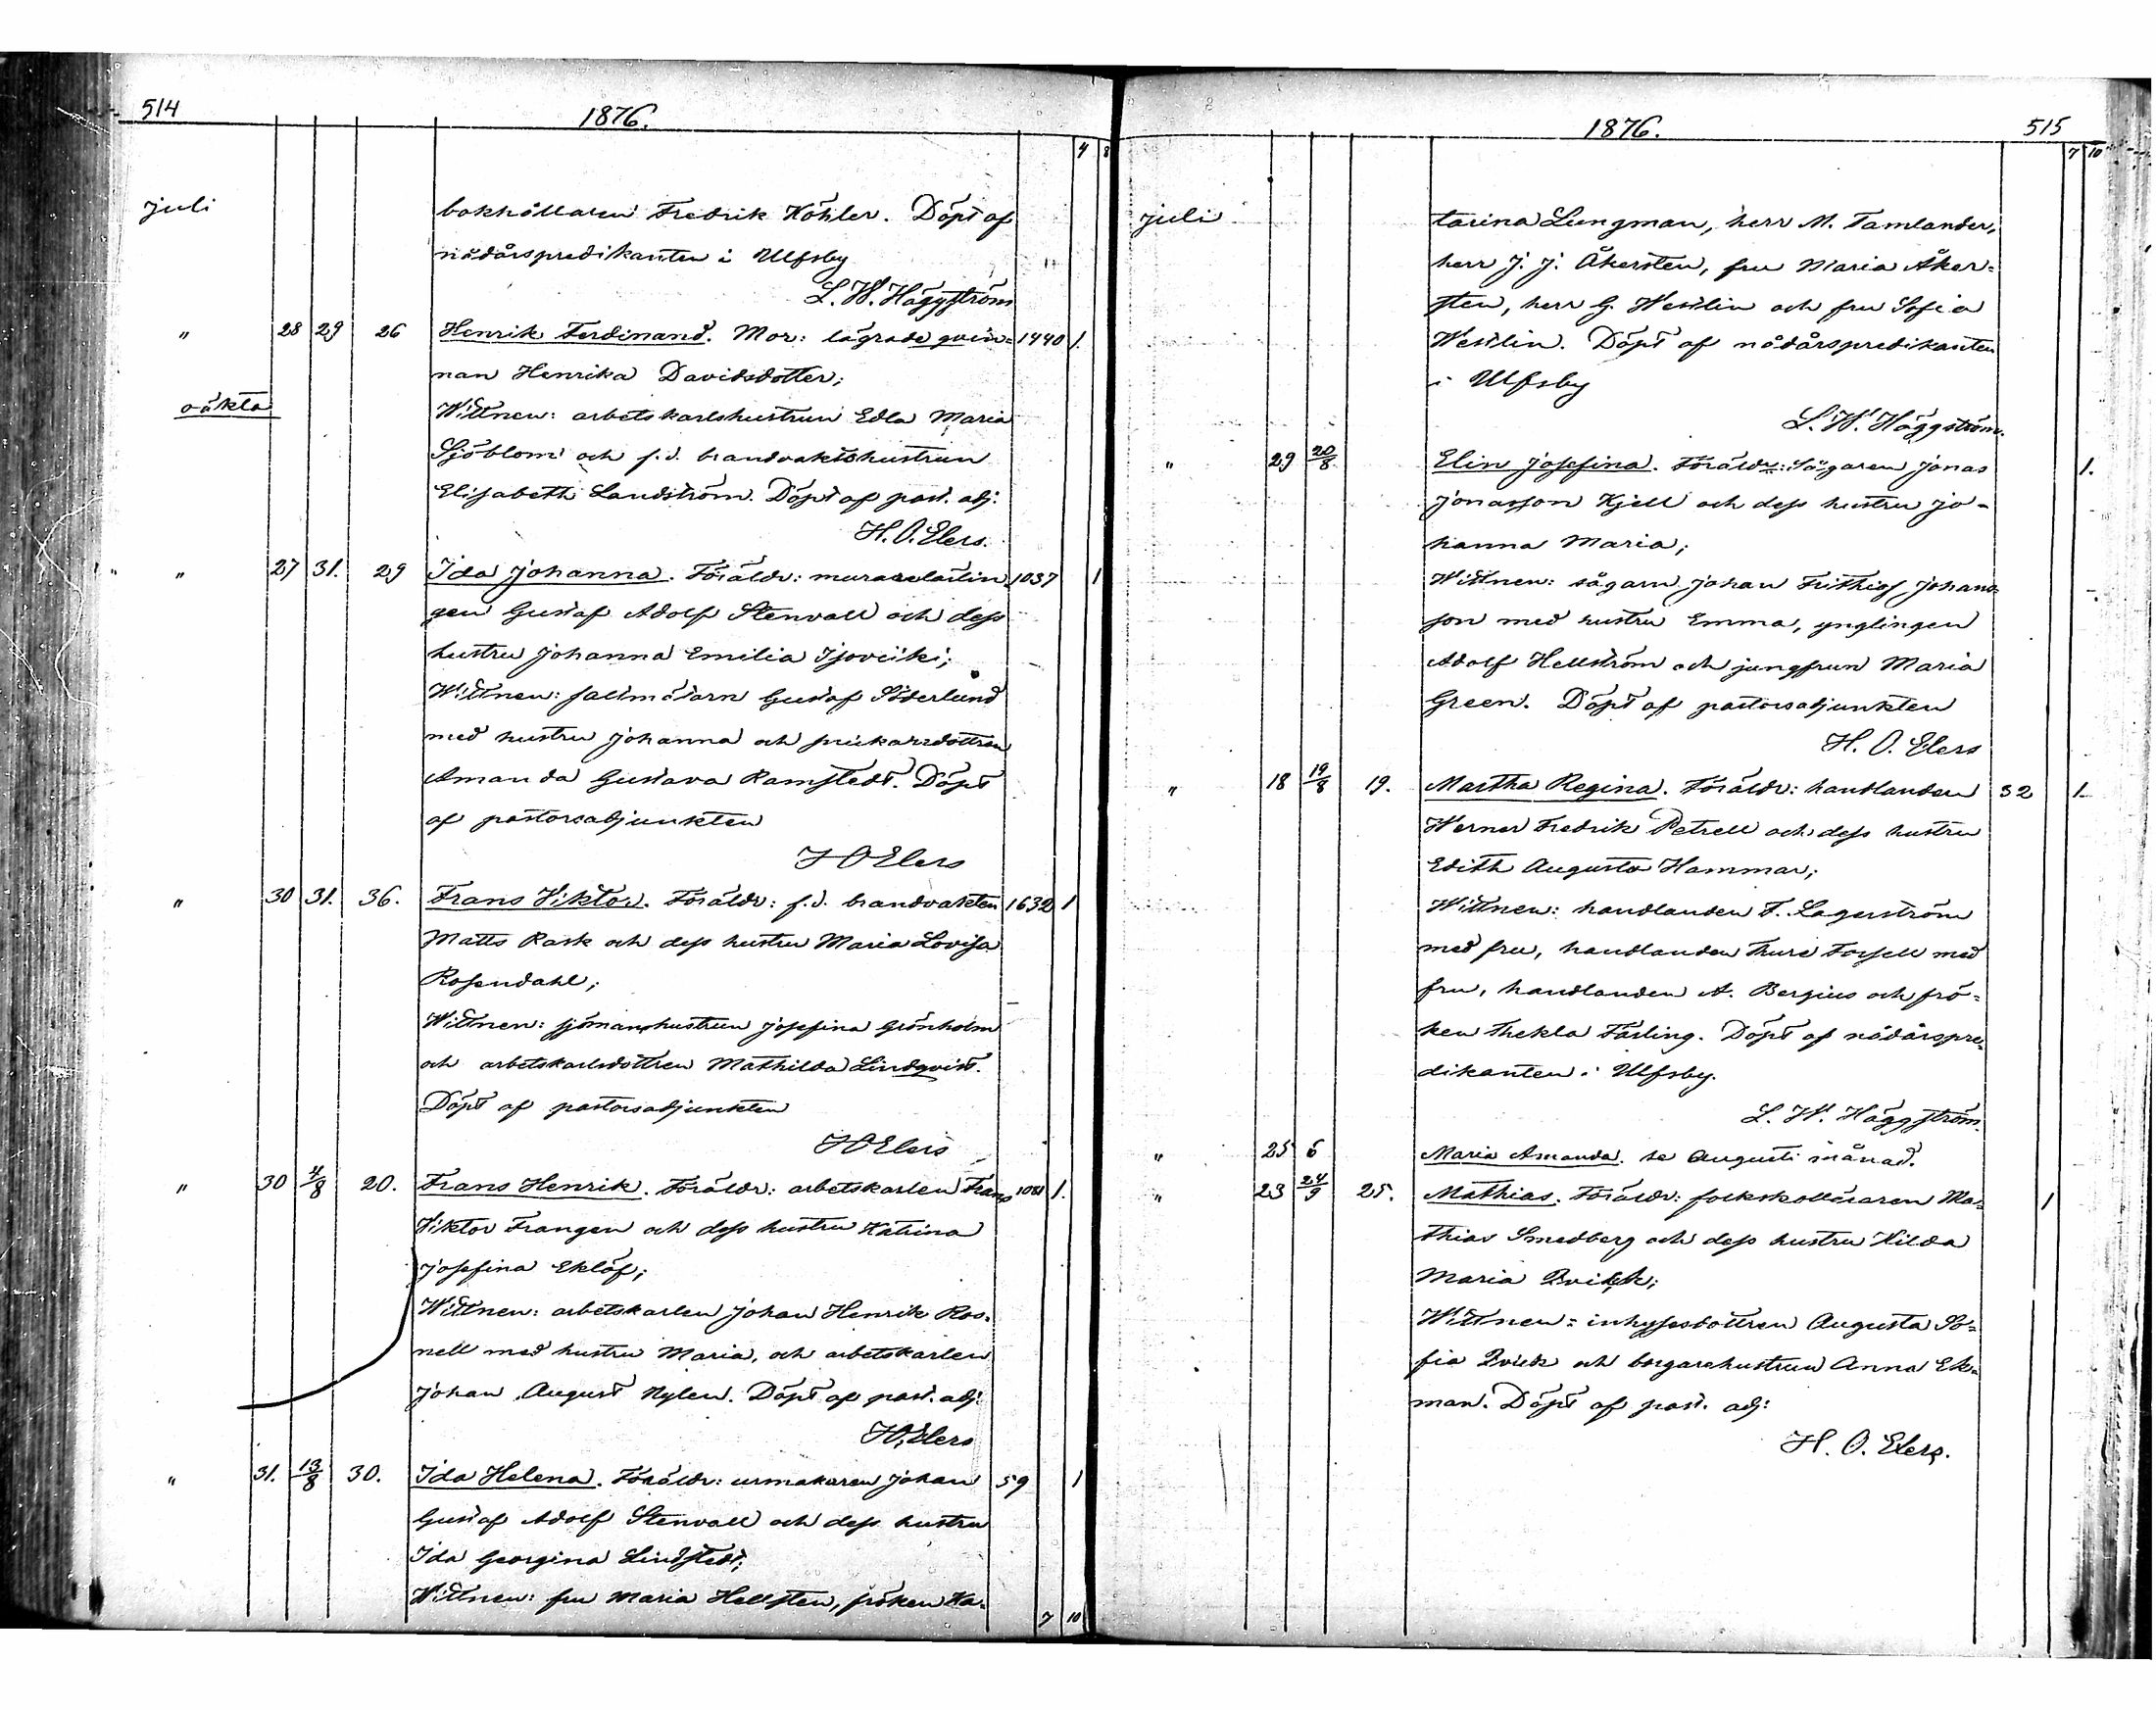 514
1876.
4 8
juli
bokhållaren Fredrik Köhler. Döpt af
nådårspredikanten i Ulfsby
L. W. Häggström
" 28 29 26 Henrik Ferdinand. Mor: lägrade qvin= 1440 1.
nan Henrika Davidsdotter;
oäkta
Wittnen: arbetskarlshustrun Edla Maria
Sjöblom och f.d. brandvaktshustrun
Elisabeth Landström. Döpt af past. adj:
H. O. Elers.
" " 27 31. 29 Ida Johanna. Föräldr: 1037 1
gen Gustaf Adolf Stenvall och dess
hustru Johanna Emilia
Wittnen: saltmätarn Gustaf Söderlund
med hustru Johanna och
Amanda Gustava Ramstedt. Döpt
af pastorsadjunkten
H O Elers
" 30 31. 36. Frans Viktor. Föräldr: f.d. brandvakten 1632 1
Matts Rask och dess hustru Maria Lovisa
Rosendahl;
Wittnen: sjömanshustrun Josefina Grönholm
och arbetskarlsdottren Mathilda Lindqvist.
Döpt af pastorsadjunkten
H O Elers
" 30 4/8 20. Frans Henrik. Föräldr: arbetskarlen Frans 1081 1.
Viktor Frangen och dess hustru Katrina
Josefina Eklöf;
Wittnen: arbetskarlen Johan Henrik Ros=
nell med hustru Maria, och arbetskarlen
Johan August Nylen. Döpt af past. adj:
H O Elers
" 31. 13/8 30. Ida Helena. Föräldr: urmakaren Johan 59 1
Gustaf Adolf Stenvall och dess hustru
Ida Georgina Lindstedt;
Wittnen: fru Maria Hellsten, fröken Ka=
7 10
1876.
515
7 10
juli
tarina Lungman, herr M. Tamlander,
herr J. J. Åkersten, fru Maria Åker=
sten, herr G. Weslin och fru Sofia
Weslin. Döpt af nådårspredikanten
i Ulfsby
L. W. Häggström.
" 29 20/8 Elin Josefina. Föräldr: Sågaren Jonas 1.
Jonasson Kjell och dess hustru Jo=
hanna Maria;
Wittnen: sågarn Johan Frithiof Johans=
son med hustru Emma, ynglingen
Adolf Hellström och jungfrun Maria
Green. Döpt af pastorsadjunkten
H. O. Elers
" 18 19/8 19. Martha Regina. Föräldr: handlanden 32 1.
Werner Fredrik Petrell och dess hustru
Edith Augusta Hammar;
Wittnen: handlanden F. Lagerström
med fru, handlanden Thure Forsell med
fru, handlanden A. Bergius och frö=
ken Thekla Färling. Döpt af nådårspre=
dikanten i Ulfsby.
L. W. Häggström.
" 25 6 Maria Amanda. se Augusti månad.
" 23 24/9 25. Mathias. Föräldr: folkskolläraren Ma= 1
thias Smedberg och dess hustru Hilda
Maria
Wittnen: inhysesdottren Augusta So=
fia och borgarehustrun Anna Ek=
man. Döpt af past. adj:
H. O. Elers.